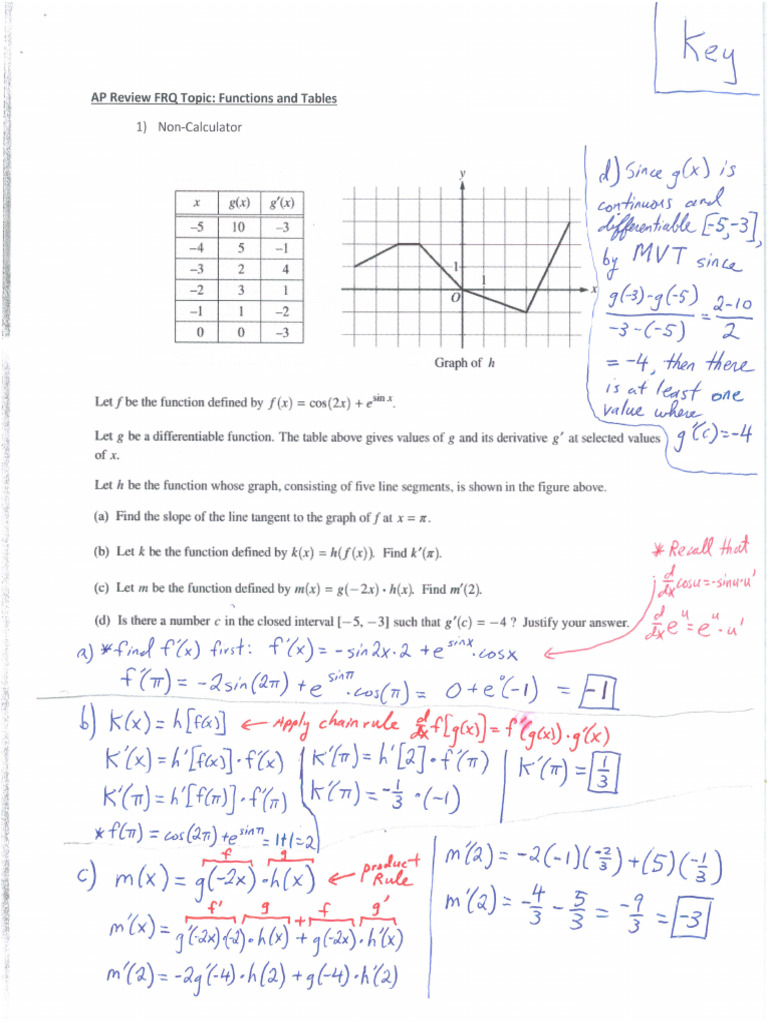 Key
AP Review FRQ Topic: Functions and Tables
1) Non-Calculator
x g(x) g′(x)
−5 10 −3
−4 5 −1
−3 2 4
−2 3 1
−1 1 −2
0 0 −3
y
1
1
O
x
Graph of h
d) Since g(x) is
continuous and
differentiable [-5,-3],
by MVT since
g(-3)-g(-5) / -3-(-5) = 2-10 / 2
= -4, then there
is at least one
value where
g'(c)=-4
Let f be the function defined by f(x) = cos(2x) + e^(sin x).
Let g be a differentiable function. The table above gives values of g and its derivative g′ at selected values
of x.
Let h be the function whose graph, consisting of five line segments, is shown in the figure above.
(a) Find the slope of the line tangent to the graph of f at x = π.
(b) Let k be the function defined by k(x) = h(f(x)). Find k′(π).
(c) Let m be the function defined by m(x) = g(−2x) · h(x). Find m′(2).
(d) Is there a number c in the closed interval [−5, −3] such that g′(c) = −4 ? Justify your answer.
* Recall that
d/dx cosu = -sinu·u'
d/dx e^u = e^u · u'
a) *find f'(x) first: f'(x) = -sin2x·2 + e^sinx · cosx
f'(π) = -2sin(2π) + e^sinπ · cos(π) = 0 + e^0(-1) = -1
b) K(x) = h[f(x)] ← Apply chain rule d/dx f[g(x)] = f'(g(x))·g'(x)
K'(x) = h'[f(x)]·f'(x)
K'(π) = h'[f(π)]·f'(π)
*f(π) = cos(2π) + e^sinπ = 1+1 = 2
K'(π) = h'[2]·f'(π)
K'(π) = -1/3 · (-1)
K'(π) = 1/3
f g
c) m(x) = g(-2x)·h(x) ← product Rule
f' g + f g'
m'(x) = g'(-2x)·(-2)·h(x) + g(-2x)·h'(x)
m'(2) = -2g'(-4)·h(2) + g(-4)·h'(2)
m'(2) = -2(-1)(-2/3) + (5)(-1/3)
m'(2) = -4/3 - 5/3 = -9/3 = -3